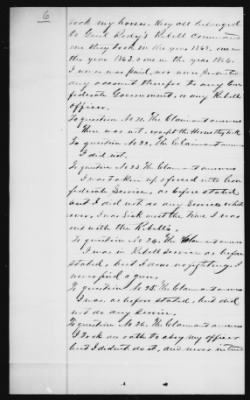 6
took my horses. they all belonged
to Genl Rody's Rebell Command
one they took in the year 1862. one in
the year 1863 & one in the year 1864.
I never was paid, nor ever presented
any account therefor to any Con
federate Government, or any Rebell
officer.
To question No 21. The Claimant answers
There was not. except the Horses they took
To question No 22. The Claimant answers
I did not.
To question No 23 The Claimant answers
I was taken up & forced into Con
federate Service, as before stated,
and I did not do any Service what
ever, I was Sick most the time I was
out with the Rebells.
To question No 24. The Claimant answers
I was in Rebell Service as before
stated, but I done no fighting. I
never fired a gun.
To question No 25. The Claimant answers
I was, as before stated, but did
not do any Service.
To question No 26. The Claimant answers
I took an oath to obey my officers
but I didn't do it, and never intend